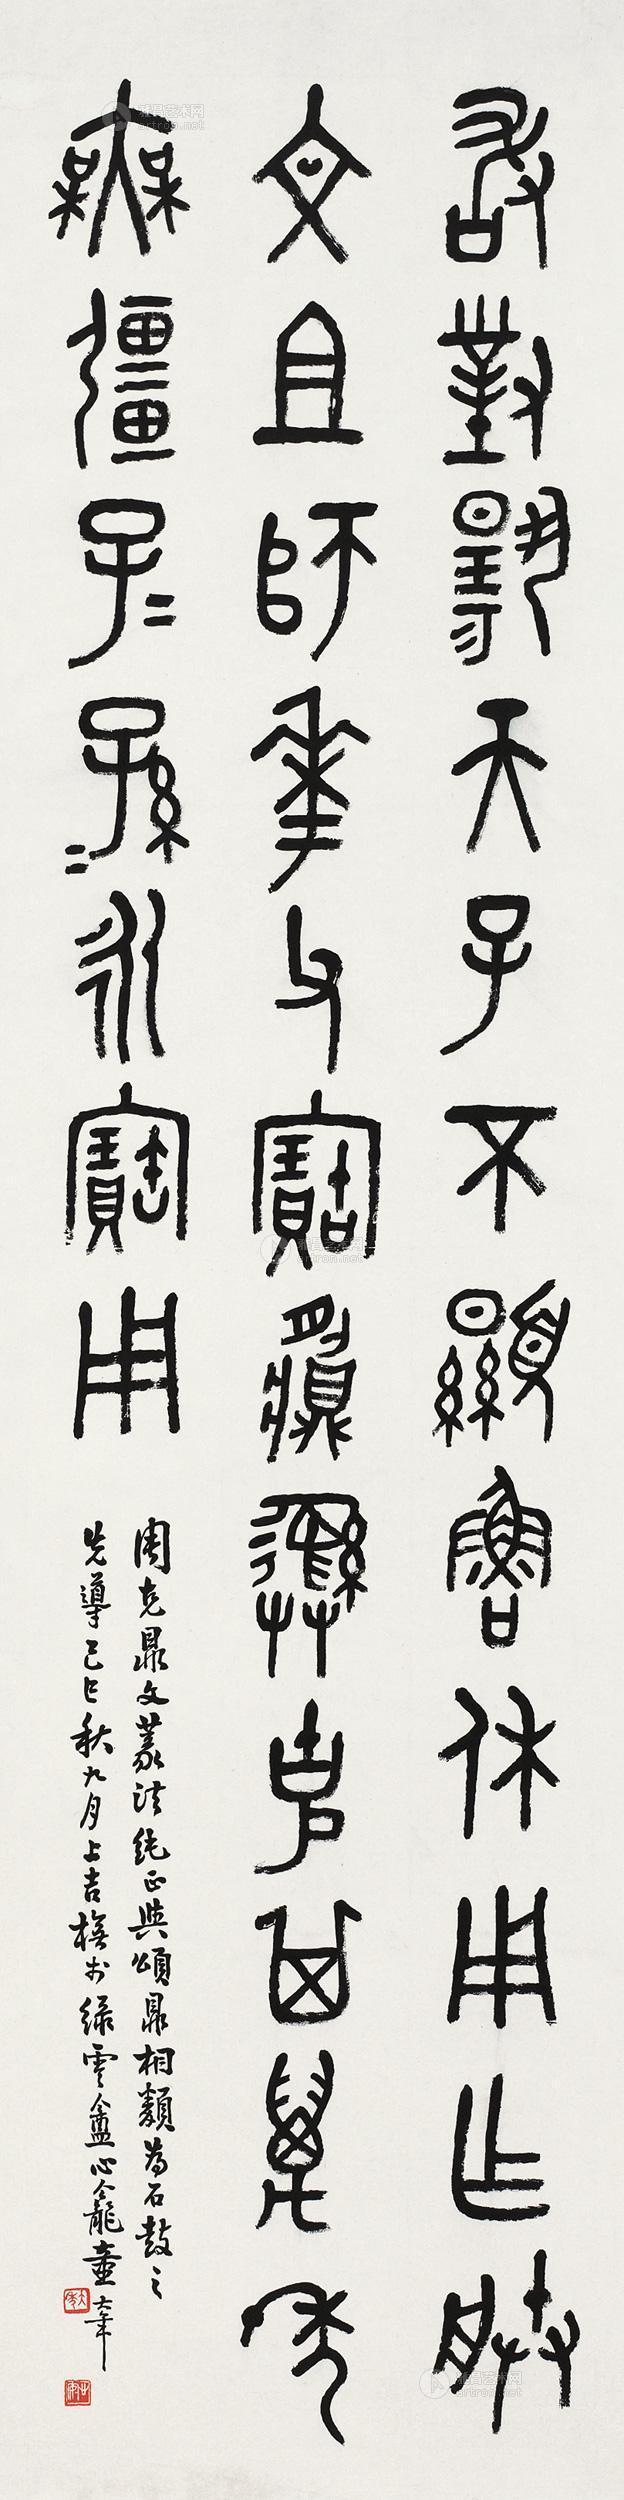 敢對揚天子不顯魯休用乍朕
文且師華父寶䵼彝克其萬年
無疆子二孫二永寶用
周克鼎文篆法純正與頌鼎相類為石鼓之
先導己巳秋九月上吉橅於綠雲盦心龕童大年
雅昌艺术网
artron.net